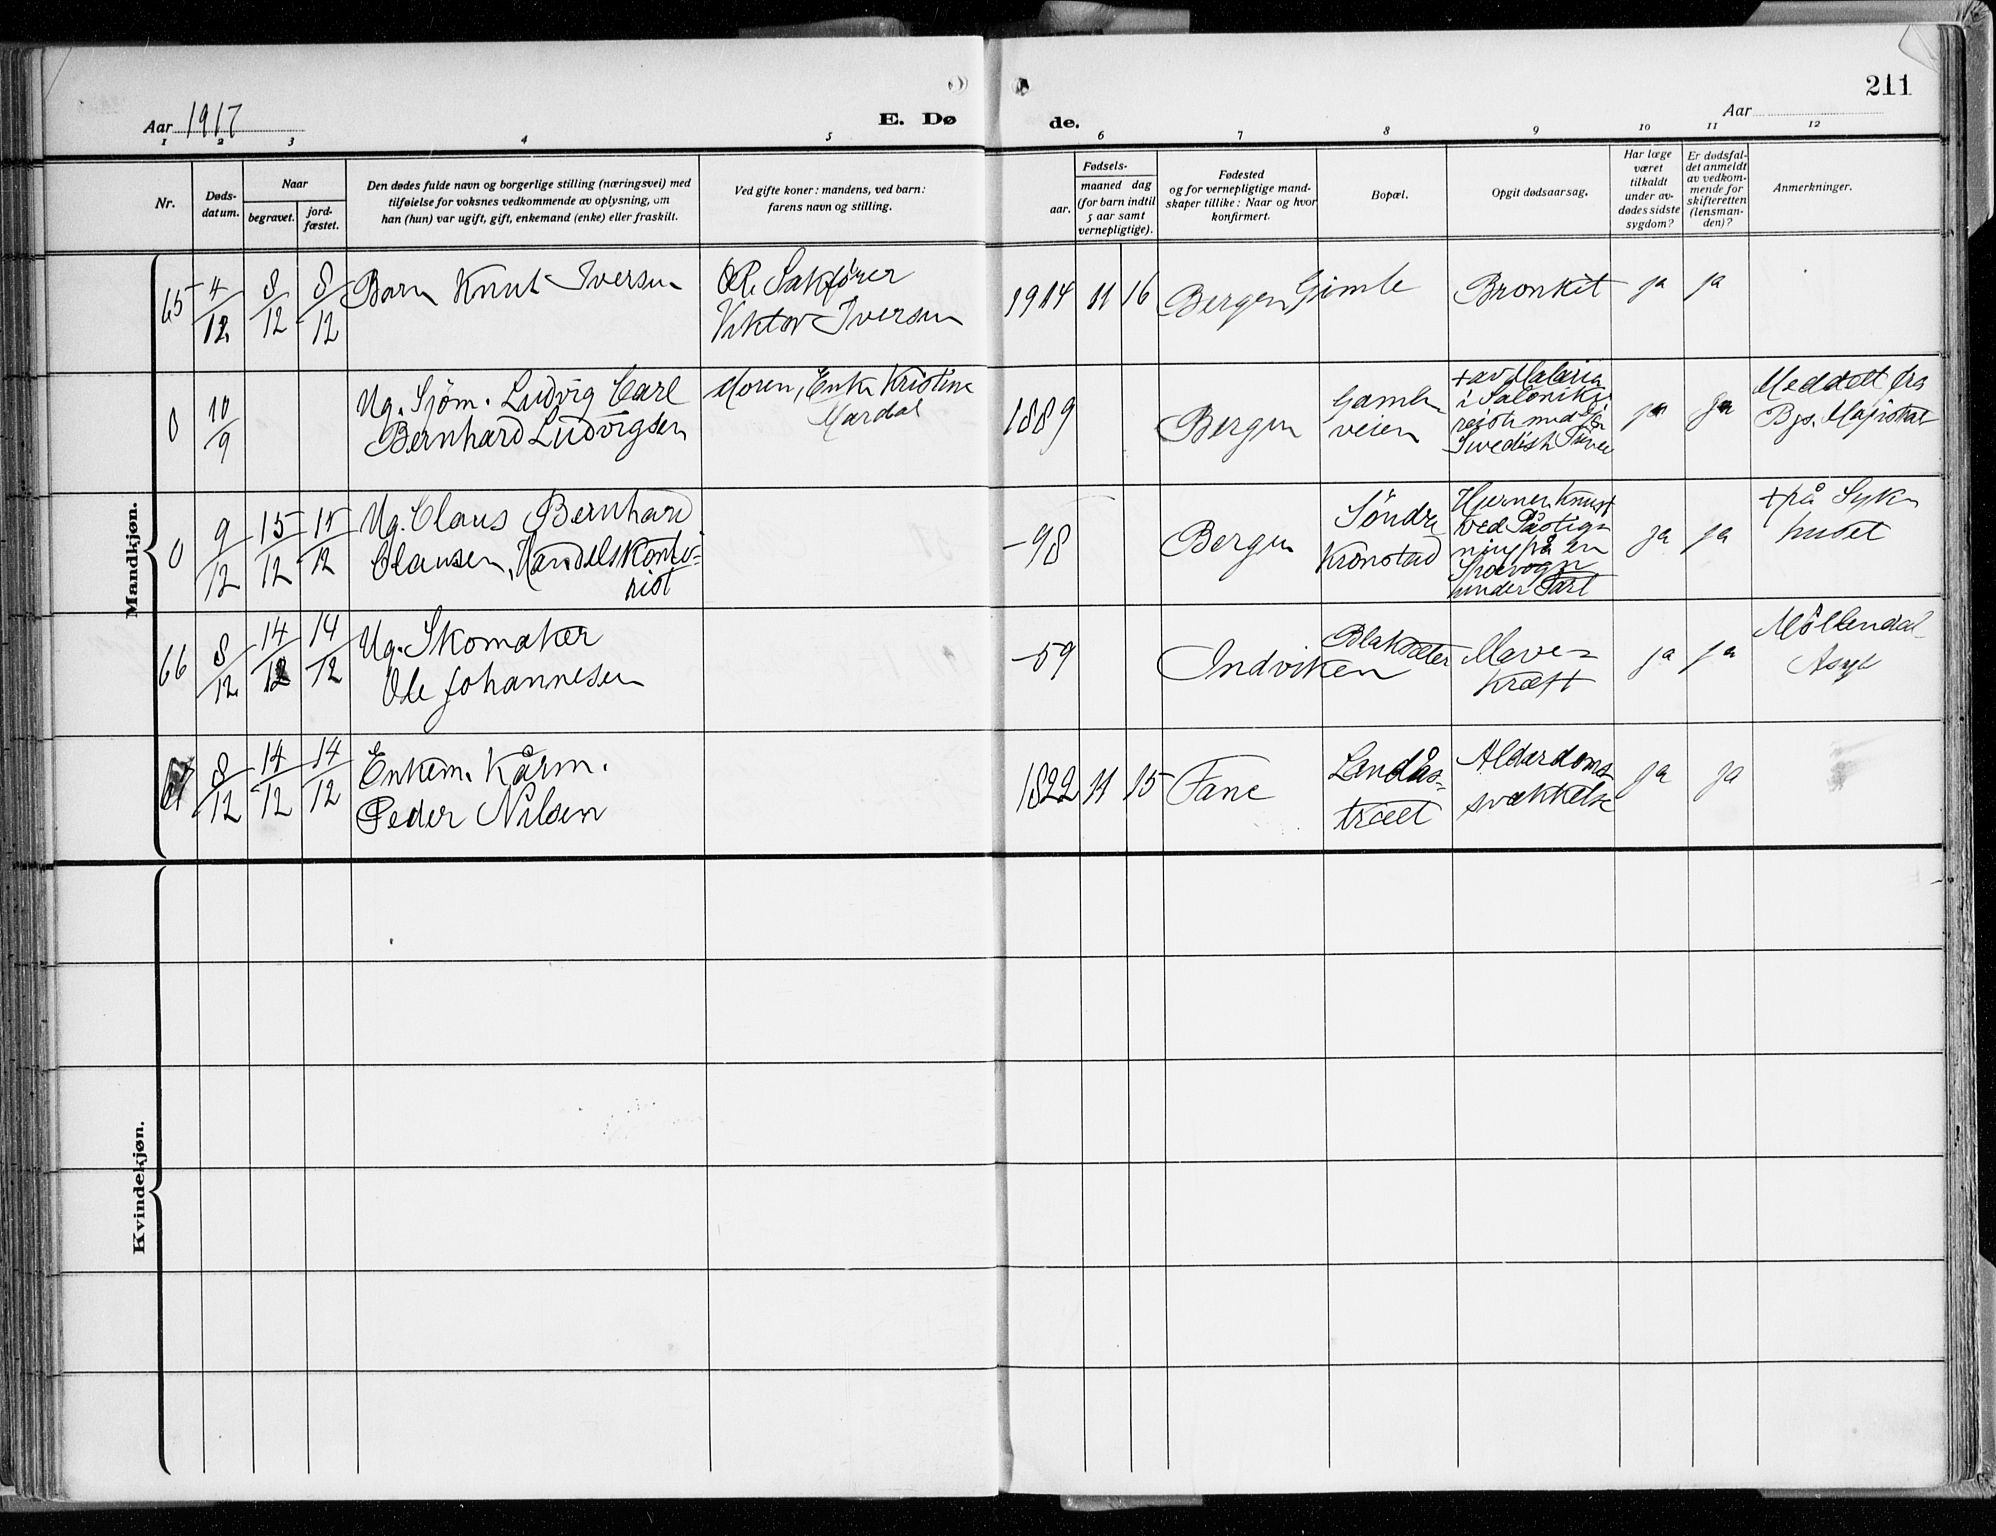 211
Aar 1917
E. Dø
de.
Aar
1 2 3 4 5 6 7 8 9 10 11 12
Nr.
Døds-
datum.
Naar
begravet.
jord-
fæstet.
Den dødes fulde navn og borgerlige stilling (næringsvei) med
tilføielse for voksnes vedkommende av oplysning, om
han (hun) var ugift, gift, enkemand (enke) eller fraskilt.
Ved gifte koner: mandens, ved barn:
farens navn og stilling.
Fødsels-
aar.
maaned dag
(for barn indtil
5 aar samt
vernepligtige).
Fødested
og for vernepligtige mand-
skaper tillike: Naar og hvor
konfirmert.
Bopæl.
Opgit dødsaarsag.
Har læge
været
tilkaldt
under av-
dødes sidste
sygdom?
Er dødsfal-
det anmeldt
av vedkom-
mende for
skifteretten
(lensman-
den)?
Anmerkninger.
Mandkjøn.
65
4/12
8/12
8/12
Barn Knut Iversen
O.R. Sakfører
Viktor Iversen
1914 11 16
Bergen
Gimle
Bronkit
ja
ja
0
10/9
Ug. Sjöm. Ludvig Carl
Bernhard Ludvigsen
Moren, Enke Kristine
Mardal
1889
Bergen
Gamle
veien
+ av Malaria
i Saloniki
reiste med
Swedish
ja
ja
Meddelt fra
Bgs. Magistrat
0
9/12
15/12
15/12
Ug. Claus Bernhard
Clausen, Handelskonto-
rist
-98
Bergen
Söndre
Kronstad
Hjernen Knust
ved Påstig-
ning på en
Sporvogn
under Fart
ja
ja
+ på Syke
huset
66
8/12
14/12
14/12
Ug. Skomaker
Ole Johannesen
-59
Indviken
Blaksæter
Mave-
kræft
ja
ja
Möllendal
Asyl
67
8/12
14/12
14/12
Enkem. Kårm.
Peder Nilsen
1822 11 15
Fane
Landås-
træet
Alderdoms-
svækkelse
ja
ja
Kvindekjøn.